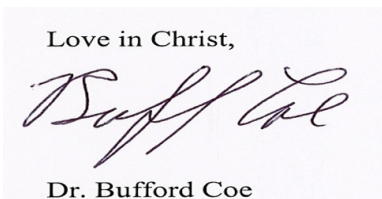 Love in Christ,
Buff Coe
Dr. Bufford Coe